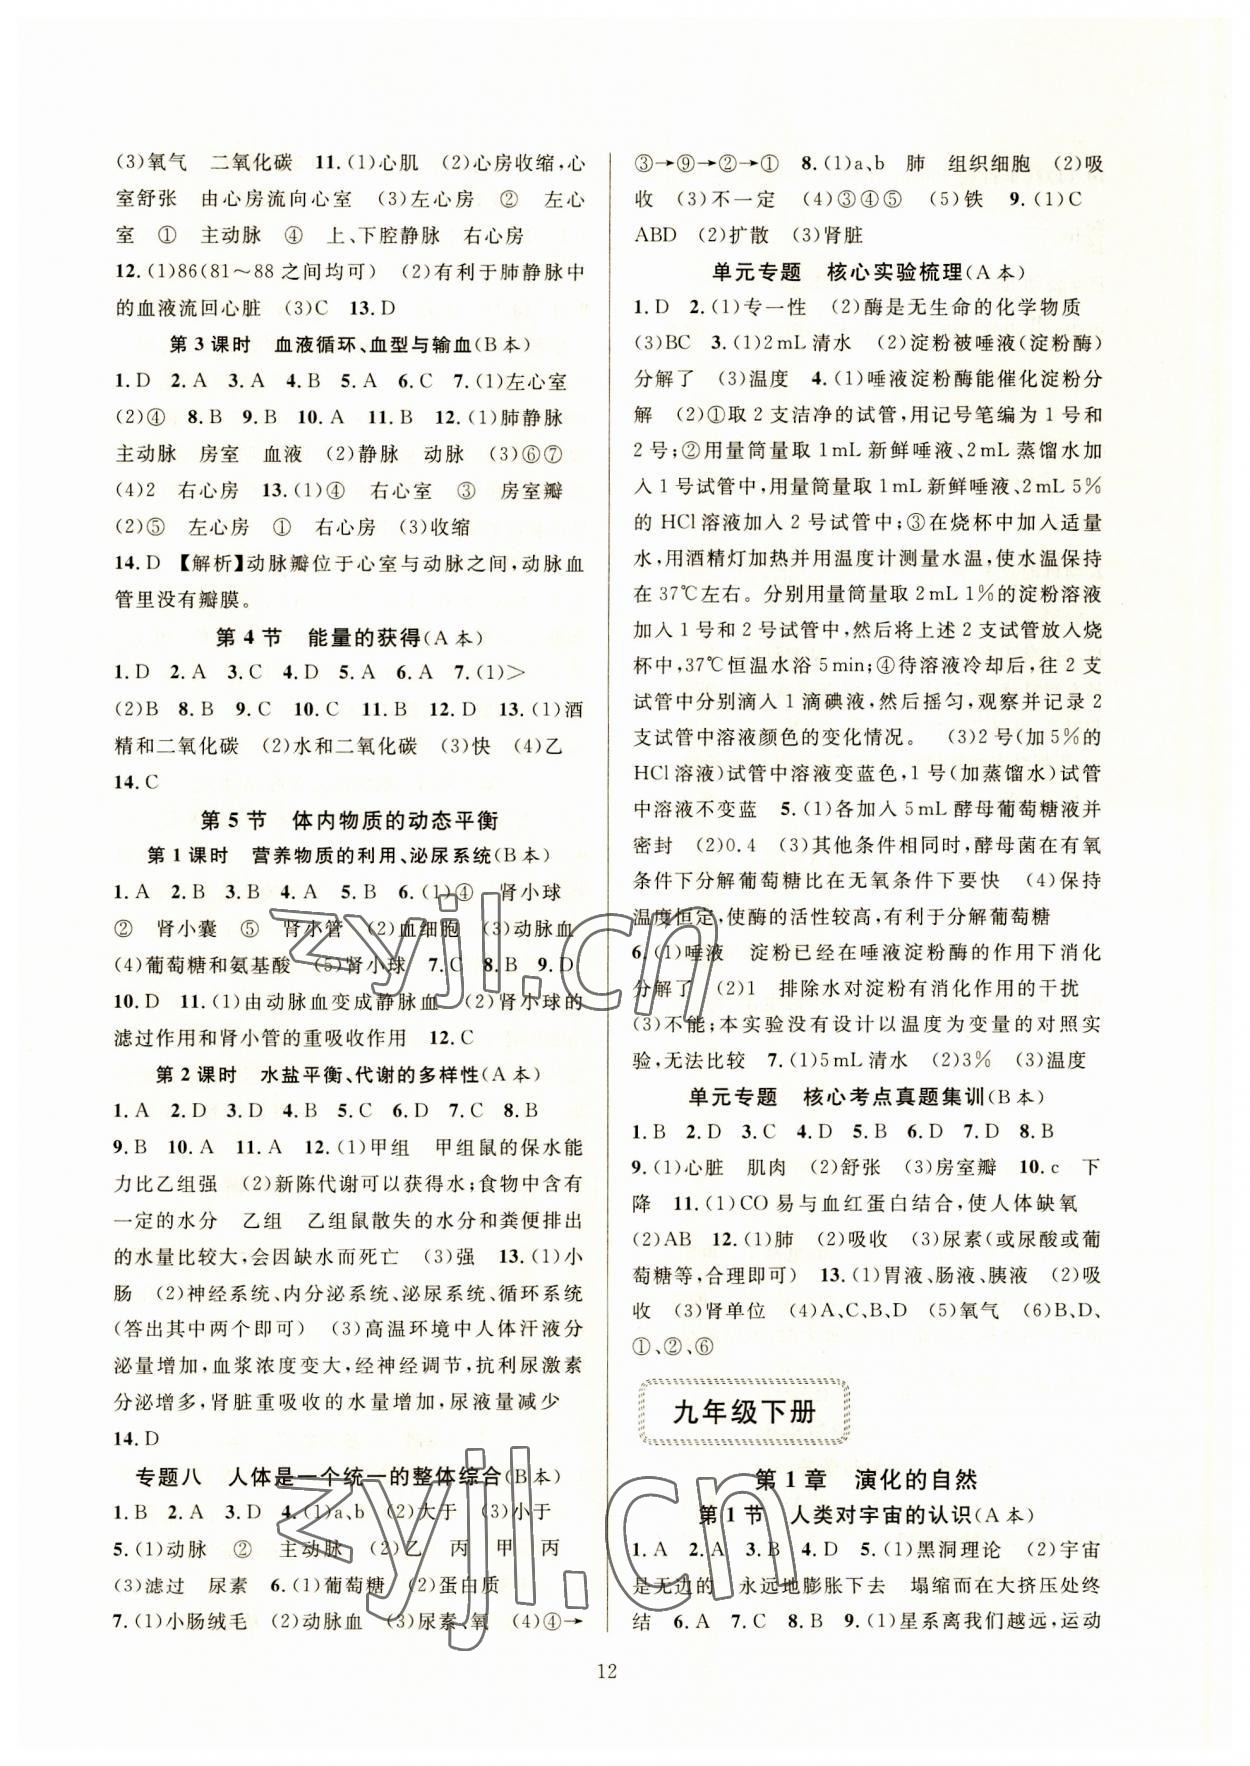 (3)氧气　二氧化碳　11.(1)心肌　(2)心房收缩,心
室舒张　由心房流向心室　(3)左心房　②　左心
室　①　主动脉　④　上、下腔静脉　右心房
12.(1)86(81～88之间均可)　(2)有利于肺静脉中
的血液流回心脏　(3)C　13.D
第3课时　血液循环、血型与输血(B本)
1.D　2.A　3.A　4.B　5.A　6.C　7.(1)左心室
(2)④　8.B　9.B　10.A　11.B　12.(1)肺静脉
主动脉　房室　血液　(2)静脉　动脉　(3)⑥⑦
(4)2　右心房　13.(1)④　右心室　③　房室瓣
(2)⑤　左心房　①　右心房　(3)收缩
14.D　【解析】动脉瓣位于心室与动脉之间,动脉血
管里没有瓣膜。
第4节　能量的获得(A本)
1.D　2.A　3.C　4.D　5.A　6.A　7.(1)>
(2)B　8.B　9.C　10.C　11.B　12.D　13.(1)酒
精和二氧化碳　(2)水和二氧化碳　(3)快　(4)乙
14.C
第5节　体内物质的动态平衡
第1课时　营养物质的利用、泌尿系统(B本)
1.A　2.A　3.B　4.A　5.B　6.(1)④　肾小球
②　肾小囊　⑤　肾小管　(2)血细胞　(3)动脉血
(4)葡萄糖和氨基酸　(5)肾小球　7.C　8.B　9.D
10.D　11.(1)由动脉血变成静脉血　(2)肾小球的
滤过作用和肾小管的重吸收作用　12.C
第2课时　水盐平衡、代谢的多样性(A本)
1.A　2.D　3.D　4.B　5.C　6.D　7.C　8.B
9.B　10.A　11.A　12.(1)甲组　甲组鼠的保水能
力比乙组强　(2)新陈代谢可以获得水;食物中含有
一定的水分　乙组　乙组鼠散失的水分和粪便排出
的水量比较大,会因缺水而死亡　(3)强　13.(1)小
肠　(2)神经系统、内分泌系统、泌尿系统、循环系统
(答出其中两个即可)　(3)高温环境中人体汗液分
泌量增加,血浆浓度变大,经神经调节,抗利尿激素
分泌增多,肾脏重吸收的水量增加,尿液量减少
14.D
专题八　人体是一个统一的整体综合(B本)
1.B　2.A　3.D　4.(1)a、b　(2)大于　(3)小于
5.(1)动脉　②　主动脉　(2)乙　丙　甲　丙
(3)滤过　尿素　6.(1)葡萄糖　(2)蛋白质
7.(1)小肠绒毛　(2)动脉血　(3)尿素、氧　(4)④→
③→⑨→②→①　8.(1)a、b　肺　组织细胞　(2)吸
收　(3)不一定　(4)③④⑤　(5)铁　9.(1)C
ABD　(2)扩散　(3)肾脏
单元专题　核心实验梳理(A本)
1.D　2.(1)专一性　(2)酶是无生命的化学物质
(3)BC　3.(1)2mL清水　(2)淀粉被唾液(淀粉酶)
分解了　(3)温度　4.(1)唾液淀粉酶能催化淀粉分
解　(2)①取2支洁净的试管,用记号笔编为1号和
2号;②用量筒量取1mL新鲜唾液、2mL蒸馏水加
入1号试管中,用量筒量取1mL新鲜唾液、2mL 5%
的HCl溶液加入2号试管中;③在烧杯中加入适量
水,用酒精灯加热并用温度计测量水温,使水温保持
在37℃左右。分别用量筒量取2mL 1%的淀粉溶液
加入1号和2号试管中,然后将上述2支试管放入烧
杯中,37℃恒温水浴5min;④待溶液冷却后,往2支
试管中分别滴入1滴碘液,然后摇匀,观察并记录2
支试管中溶液颜色的变化情况。　(3)2号(加5%的
HCl溶液)试管中溶液变蓝色,1号(加蒸馏水)试管
中溶液不变蓝　5.(1)各加入5mL酵母葡萄糖液并
密封　(2)0.4　(3)其他条件相同时,酵母菌在有氧
条件下分解葡萄糖比在无氧条件下要快　(4)保持
温度恒定,使酶的活性较高,有利于分解葡萄糖
6.(1)唾液　淀粉已经在唾液淀粉酶的作用下消化
分解了　(2)1　排除水对淀粉有消化作用的干扰
(3)不能;本实验没有设计以温度为变量的对照实
验,无法比较　7.(1)5mL清水　(2)3%　(3)温度
单元专题　核心考点真题集训(B本)
1.B　2.D　3.C　4.D　5.B　6.D　7.D　8.B
9.(1)心脏　肌肉　(2)舒张　(3)房室瓣　10.c　下
降　11.(1)CO易与血红蛋白结合,使人体缺氧
(2)AB　12.(1)肺　(2)吸收　(3)尿素(或尿酸或葡
萄糖等,合理即可)　13.(1)胃液、肠液、胰液　(2)吸
收　(3)肾单位　(4)A、C、B、D　(5)氧气　(6)B、D、
①、②、⑥
九年级下册
第1章　演化的自然
第1节　人类对宇宙的认识(A本)
1.A　2.A　3.B　4.D　5.(1)黑洞理论　(2)宇宙
是无边的　永远地膨胀下去　塌缩而在大挤压处终
结　6.A　7.C　8.B　9.(1)星系离我们越远,运动
12
zyjl.cn
zyjl.cn